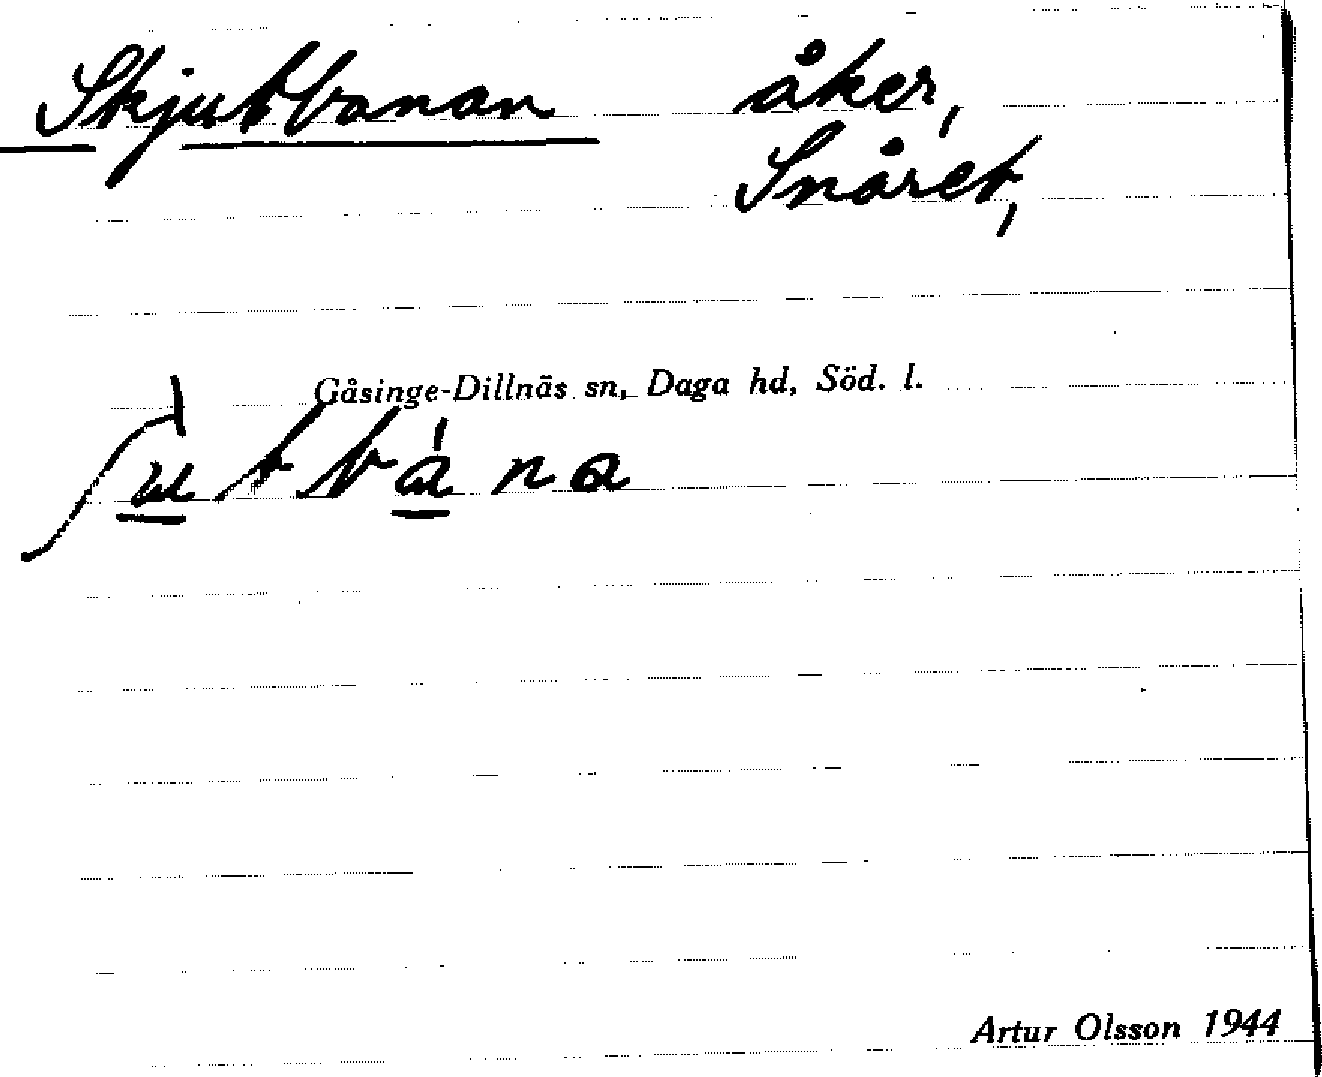 Skjutbanan åker,
Snåret,
Gåsinge-Dillnäs sn, Daga hd, Söd. l.
ʃu̲tba̲na
Artur Olsson 1944